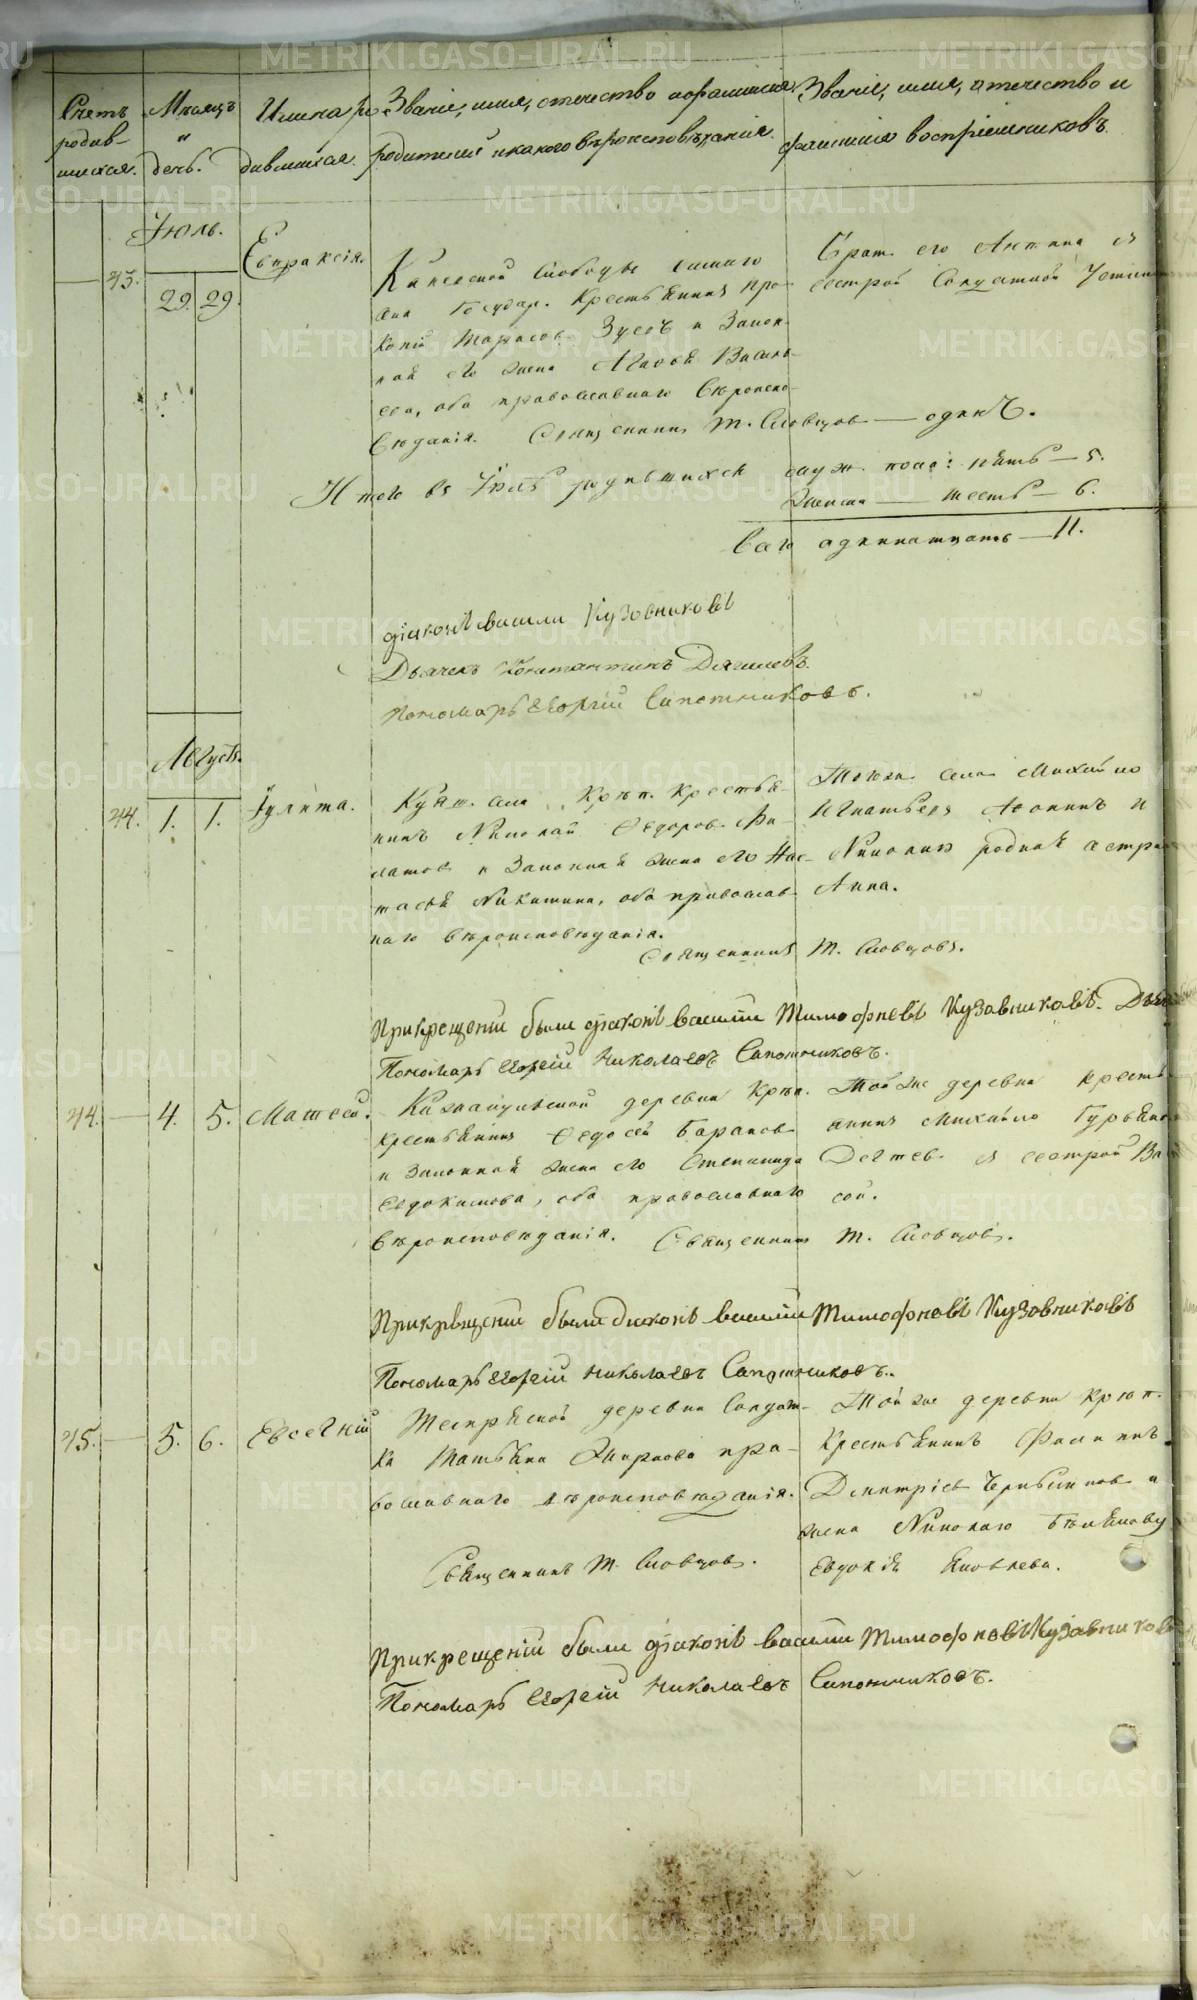 Счетъ родив-
шихся.
Мѣсяцъ
и
день.
Имена ро
дившихся.
Званіе, имя, отечество и фамилія
родителей и какого вѣроисповѣданія.
Званіе, имя, отечество и
фамилія воспріемниковъ.
Іюль.
43.
29. 29.
Евпраксія.
слободы
Государ. Крестьянинъ Про-
копій Тарасов и Закон-
ная его жена Агафья Василь-
ева, оба православнаго вѣроиспо-
вѣданія. Священникъ Т. Словцов — одинъ.
Брат его и
сестрой
Итого въ Іюлѣ родившихся муж. пола: пять — 5.
Женска — шесть — 6.
Всего одиннатцать — 11.
Діаконъ Василій Кузовниковъ
Дьячекъ Константинъ
Пономарь Георгій Сапожниковъ.
Августъ.
44. 1. 1. Іулита.
села Крѣп. Крестья-
нинъ Николай Федоров Фи-
латов и Законная жена его Нас-
тасья Никитина, оба православ-
наго вѣроисповѣданія.
Священникъ Т. Словцовъ.
села Михайло
Игнатьевъ и
Николаю родная сестра
Анна.
При крещеніи были діаконъ Василій Тимофеевъ Кузовниковъ.
Пономарь Георгій Николаевъ Сапожниковъ.
44. 4. 5. Матвей.
деревни Крѣп.
крестьянинъ Федосей Баранов
и Законная жена его Степанида
Евдокимова, оба православнаго
вѣроисповѣданія. Священникъ Т. Словцовъ.
Той же деревни кресть-
янинъ Михайло
сестрой
При крещеніи были діаконъ Василій Тимофеевъ Кузовниковъ
Пономарь Георгій Николаевъ Сапожниковъ.
45. 5. 6. Евсегній
деревни Солдат-
ка Татьяна пра-
вославнаго вѣроисповѣданія.
Священникъ Т. Словцовъ.
Той же деревни Крѣп.
Крестьянинъ Филиппъ
Дмитріев и
жена Николаю
Евдокія Яковлева.
При крещеніи были діаконъ Василій Тимофеевъ Кузовников
Пономарь Георгій Николаевъ Сапожниковъ.
METRIKI.GASO-URAL.RU